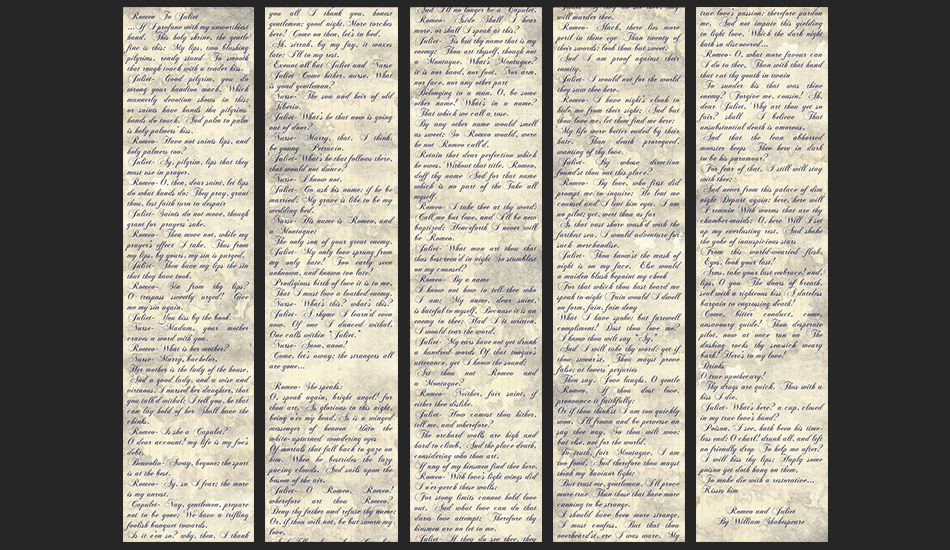 Romeo To Juliet
... If I profane with my unworthiest
hand. This holy shrine, the gentle
fine is this: My lips, two blushing
pilgrims, ready stand To smooth
that rough touch with a tender kiss.
Juliet- Good pilgrim, you do
wrong your hand too much, Which
mannerly devotion shows in this;
or saints have hands the pilgrim's
hands do touch, And palm to palm
is holy palmers' kiss.
Romeo- Have not saints lips, and
holy palmers too?
Juliet- Ay, pilgrim, lips that they
must use in prayer.
Romeo- O, then, dear saint, let lips
do what hands do; They pray, grant
thou, lest faith turn to despair
Juliet- Saints do not move, though
grant for prayers' sake.
Romeo- Then move not, while my
prayer's effect I take. Thus from
my lips, by yours, my sin is purged.
Juliet- Then have my lips the sin
that they have took.
Romeo- Sin from thy lips?
O trespass sweetly urged! Give
me my sin again.
Juliet- You kiss by the book.
Nurse- Madam, your mother
craves a word with you.
Romeo- What is her mother?
Nurse- Marry, bachelor,
Her mother is the lady of the house,
And a good lady, and a wise and
virtuous: I nursed her daughter, that
you talk'd withal; I tell you, he that
can lay hold of her Shall have the
chinks.
Romeo- Is she a Capulet?
O dear account! my life is my foe's
debt.
Benvolio- Away, begone; the sport
is at the best.
Romeo- Ay, so I fear; the more
is my unrest.
Capulet- Nay, gentlemen, prepare
not to be gone; We have a trifling
foolish banquet towards.
Is it e'en so? why, then, I thank
you all I thank you, honest
gentlemen; good night. More torches
here! Come on then, let's to bed.
Ah, sirrah, by my fay, it waxes
late: I'll to my rest.
Exeunt all but Juliet and Nurse
Juliet- Come hither, nurse. What
is yond gentleman?
Nurse- The son and heir of old
Tiberio.
Juliet- What's he that now is going
out of door?
Nurse- Marry, that, I think,
be young Petrucio.
Juliet- What's he that follows there,
that would not dance?
Nurse- I know not.
Juliet- Go ask his name: if he be
married, My grave is like to be my
wedding bed.
Nurse- His name is Romeo, and
a Montague;
The only son of your great enemy.
Juliet- My only love sprung from
my only hate! Too early seen
unknown, and known too late!
Prodigious birth of love it is to me,
That I must love a loathed enemy.
Nurse- What's this? what's this?
Juliet- A rhyme I learn'd even
now Of one I danced withal.
One calls within "Juliet."
Nurse- Anon, anon!
Come, let's away; the strangers all
are gone...
Romeo- She speaks:
O, speak again, bright angel! for
thou art. As glorious to this night,
being o'er my head As is a winged
messenger of heaven Unto the
white-upturned wondering eyes
Of mortals that fall back to gaze on
him When he bestrides the lazy
pacing clouds, And sails upon the
bosom of the air.
Juliet- O Romeo, Romeo!
wherefore art thou Romeo?
Deny thy father and refuse thy name;
Or, if thou wilt not, be but sworn my
love,
And I'll no longer be a Capulet.
Romeo- Aside Shall I hear
more, or shall I speak at this?
Juliet- Tis but thy name that is my
enemy; Thou art thyself, though not
a Montague. What's Montague?
it is nor hand, nor foot, Nor arm,
nor face, nor any other part
Belonging to a man. O, be some
other name! What's in a name?
That which we call a rose.
By any other name would smell
as sweet; So Romeo would, were
he not Romeo call'd,
Retain that dear perfection which
he owes. Without that title. Romeo,
doff thy name And for that name
which is no part of thee Take all
myself.
Romeo- I take thee at thy word:
Call me but love, and I'll be new
baptized; Henceforth I never will
be Romeo.
Juliet- What man art thou that
thus bescreen'd in night So stumblest
on my counsel?
Romeo- By a name
I know not how to tell thee who
I am: My name, dear saint,
is hateful to myself, Because it is an
enemy to thee; Had I it written,
I would tear the word.
Juliet- My ears have not yet drunk
a hundred words Of that tongue's
utterance, yet I know the sound:
Art thou not Romeo and
a Montague?
Romeo- Neither, fair saint, if
either thee dislike.
Juliet- How camest thou hither,
tell me, and wherefore?
The orchard walls are high and
hard to climb, And the place death,
considering who thou art,
If any of my kinsmen find thee here.
Romeo- With love's light wings did
I o'er-perch these walls;
For stony limits cannot hold love
out, And what love can do that
dares love attempt; Therefore thy
kinsmen are no let to me.
Juliet- If they do see thee, they
will murder thee.
Romeo- Alack, there lies more
peril in thine eye Than twenty of
their swords: look thou but sweet,
And I am proof against their
enmity.
Juliet- I would not for the world
they saw thee here.
Romeo- I have night's cloak to
hide me from their sight; And but
thou love me, let them find me here:
My life were better ended by their
hate, Than death prorogued,
wanting of thy love.
Juliet- By whose direction
found'st thou out this place?
Romeo- By love, who first did
prompt me to inquire; He lent me
counsel and I lent him eyes. I am
no pilot; yet, wert thou as far
As that vast shore wash'd with the
farthest sea, I would adventure for
such merchandise.
Juliet- Thou know'st the mask of
night is on my face, Else would
a maiden blush bepaint my cheek
For that which thou hast heard me
speak to-night Fain would I dwell
on form, fain, fain deny
What I have spoke: but farewell
compliment! Dost thou love me?
I know thou wilt say 'Ay,'
And I will take thy word: yet if
thou swear'st, Thou mayst prove
false; at lovers' perjuries
Then say, Jove laughs. O gentle
Romeo, If thou dost love,
pronounce it faithfully:
Or if thou think'st I am too quickly
won, I'll frown and be perverse an
say thee nay, So thou wilt woo;
but else, not for the world.
In truth, fair Montague, I am
too fond, And therefore thou mayst
think my havior light:
But trust me, gentleman, I'll prove
more true Than those that have more
cunning to be strange.
I should have been more strange,
I must confess, But that thou
overheard'st, ere I was ware, My
true love's passion: therefore pardon
me, And not impute this yielding
to light love, Which the dark night
hath so discovered...
Romeo- O, what more favour can
I do to thee, Than with that hand
that cut thy youth in twain
To sunder his that was thine
enemy? Forgive me, cousin! Ah,
dear Juliet, Why art thou yet so
fair? shall I believe That
unsubstantial death is amorous,
And that the lean abhorred
monster keeps Thee here in dark
to be his paramour?
For fear of that, I still will stay
with thee;
And never from this palace of dim
night Depart again: here, here will
I remain With worms that are thy
chamber-maids; O, here Will I set
up my everlasting rest, And shake
the yoke of inauspicious stars
From this world-wearied flesh.
Eyes, look your last!
Arms, take your last embrace! and,
lips, O you The doors of breath,
seal with a righteous kiss A dateless
bargain to engrossing death!
Come, bitter conduct, come,
unsavoury guide! Thou desperate
pilot, now at once run on The
dashing rocks thy seasick weary
bark! Here's to my love!
Drinks
O true apothecary!
Thy drugs are quick. Thus with a
kiss I die.
Juliet- What's here? a cup, closed
in my true love's hand?
Poison, I see, hath been his time-
less end: O churl! drunk all, and left
no friendly drop To help me after?
I will kiss thy lips; Haply some
poison yet doth hang on them,
To make die with a restorative...
Kisses him
Romeo and Juliet
By William Shakespeare